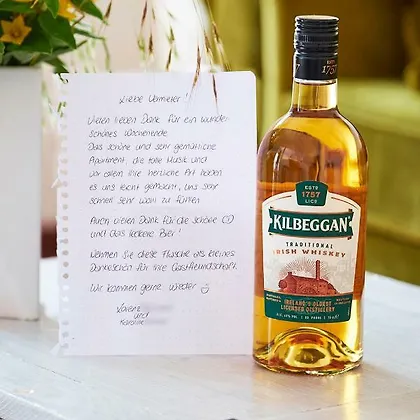 Liebe Vermieter!
Vielen lieben Dank für ein wunder
schönes Wochenende.
Das schöne und sehr gemütliche
Apartment, die tolle Musik und
vor allem ihre herzliche Art haben
es uns leicht gemacht, uns sehr
schnell sehr wohl zu fühlen.
Auch vielen Dank für die schöne CD
und das leckere Bier!
Nehmen Sie diese Flasche als kleines
Dankeschön für ihre Gastfreundschaft.
Wir kommen gerne wieder
und
1757
ESTD
1757
LOCKE
KILBEGGAN
TRADITIONAL
IRISH WHISKEY
IRELAND'S OLDEST
LICENSED DISTILLERY